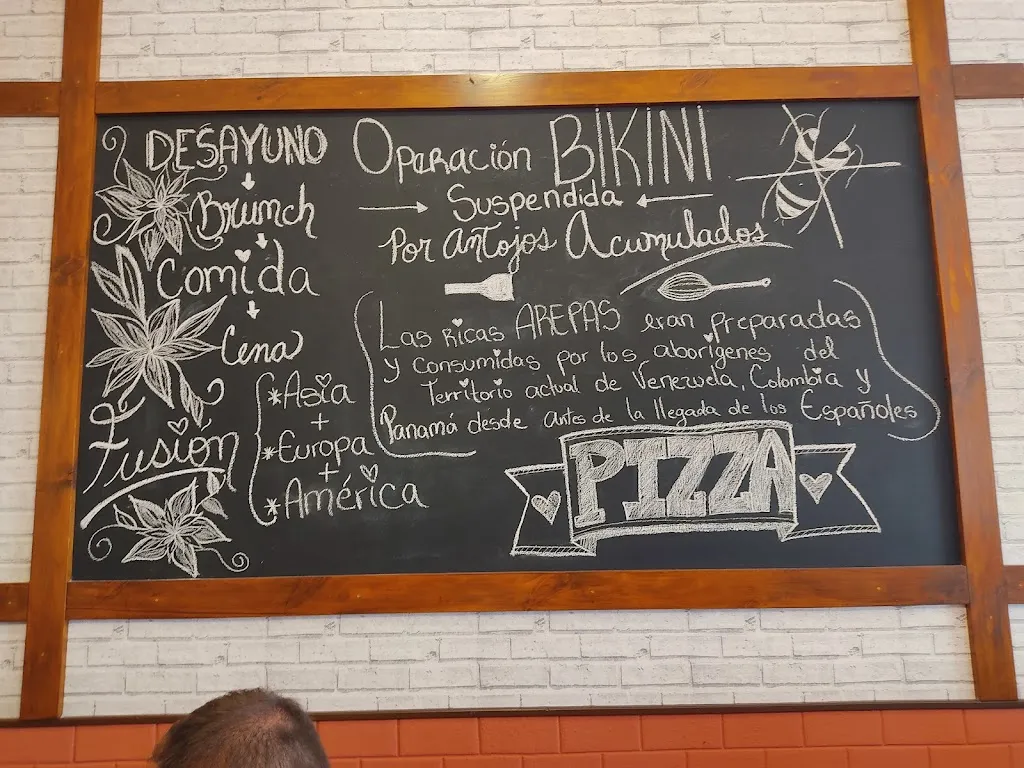 DESAYUNO
Brunch
Comida
Cena
Fusión
*Asia
+
*Europa
+
*América
Operación BIKINI
Suspendida
Por Antojos Acumulados
Las Ricas AREPAS eran preparadas
y consumidas por los aborígenes del
Territorio actual de Venezuela, Colombia y
Panamá desde Antes de la llegada de los Españoles
PIZZA